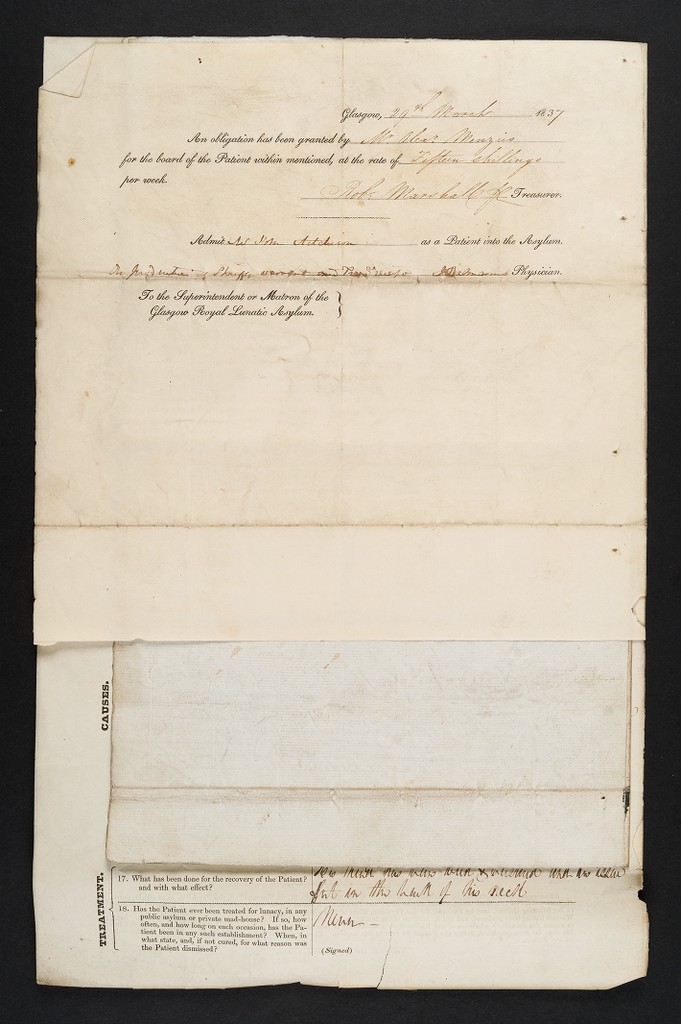 Glasgow, 29th March 1837
An obligation has been granted by Mr Alexr Menzies
for the board of the Patient within mentioned, at the rate of Fifteen Shillings
per week.
Robt Marshall Treasurer.
Admit Mr John Aitchison as a Patient into the Asylum.
Sheriffs warrant and Physician.
To the Superintendent or Matron of the
Glasgow Royal Lunatic Asylum.
CAUSES.
TREATMENT.
17. What has been done for the recovery of the Patient?
and with what effect?
His head has been and an issue
put in the back of his neck
18. Has the Patient ever been treated for lunacy, in any
public asylum or private mad-house? If so, how
often, and how long on each occasion, has the Pa-
tient been in any such establishment? When, in
what state, and, if not cured, for what reason was
the Patient dismissed?
Never
(Signed)